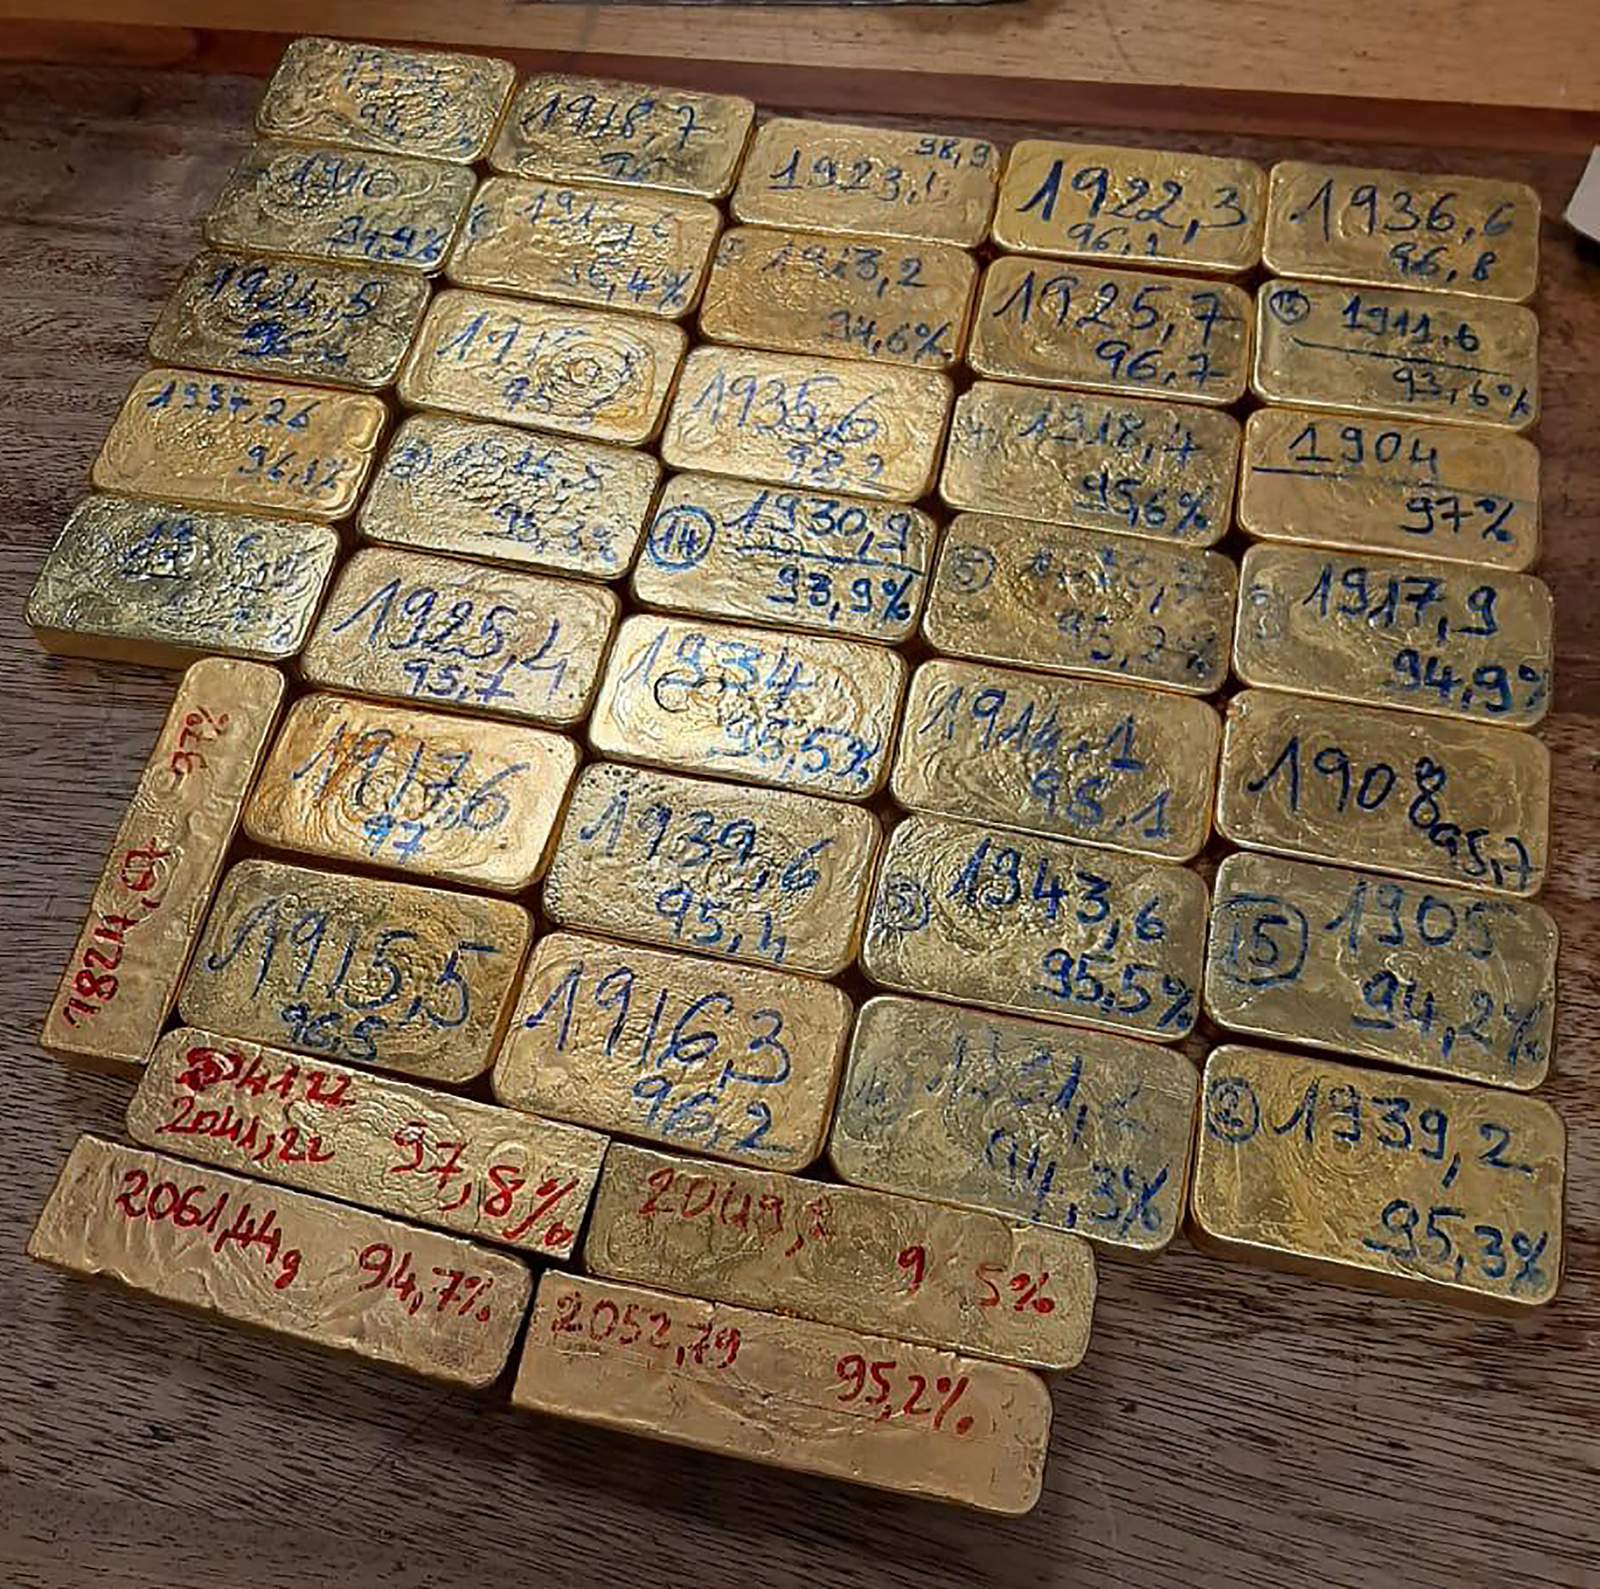 1918,7
98,9
1923,1
1922,3
96,1
1936,6
96,8
1910
94,9%
95,4%
1913,2
94,6%
1925,7
96,7
12
1911.6
93,6%
1924,5
1935,6
98,9
4
1918,4
95,6%
1904
97%
1937,26
96,1%
95,3%
14
1930,9
93,9%
5
95,2%
1917,9
94,9%
1925,4
95,7
1934
95,5%
1914,1
95.1
1908
95,7
97%
1824,67
1917,6
97
1939,6
95,4
1943,6
95,5%
15
1905
94,2%
1915,5
96,5
1916,3
96,2
94,3%
1939,2
95,3%
204122
2041,22
97,8%
2061,44g
94,7%
2052,79
95,2%